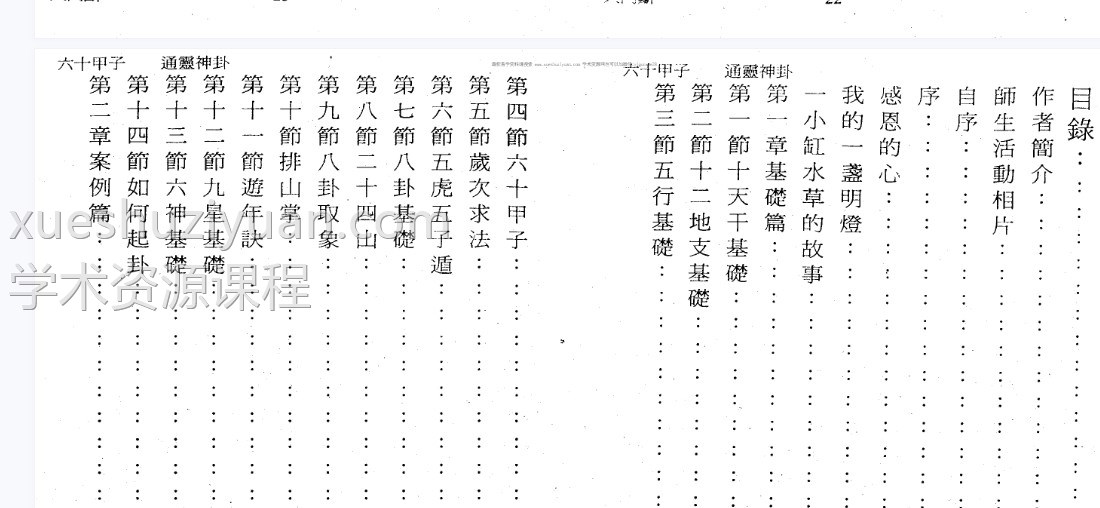 22
六十甲子 通靈神卦
目錄
作者簡介
師生活動相片
自序
序
感恩的心
我的一盞明燈
一小缸水草的故事
第一章基礎篇
第一節十天干基礎
第二節十二地支基礎
第三節五行基礎
六十甲子 通靈神卦
第四節六十甲子
第五節歲次求法
第六節五虎五子遁
第七節八卦基礎
第八節二十四山
第九節八卦取象
第十節排山掌
第十一節遊年訣
第十二節九星基礎
第十三節六神基礎
第十四節如何起卦
第二章案例篇
xueshuziyuan.com
学术资源课程